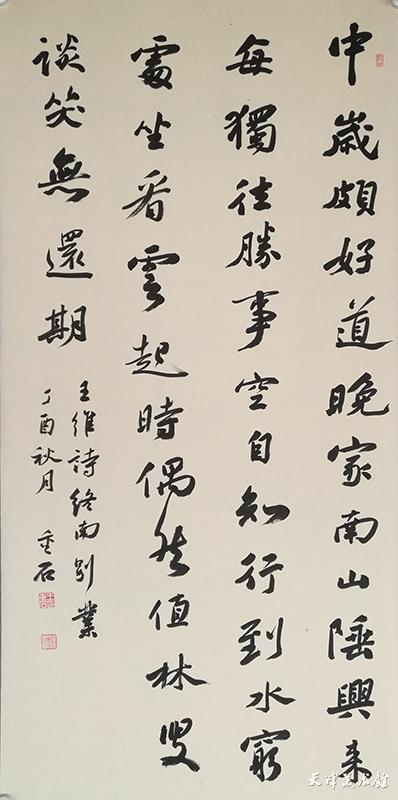 中歲頗好道晚家南山陲興来
每獨往勝事空自知行到水窮
處坐看雲起時偶然值林叟
談笑無還期
王維詩終南別業
丁酉秋月 垂石
天津美术馆